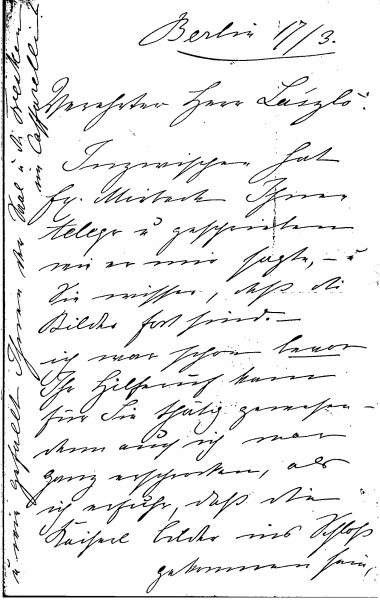 Berlin 17/3.
Verehrter Herr László.
Inzwischen hat
Fr. Ihnen
telegr u geschrieben
wie er mir sagte, – u
Sie wissen, daß die
Bilder fort sind. –
ich war schon bevor
Ihr Hilferuf kam
für Sie thätig gewesen –
denn auch ich war
ganz erschrocken, als
ich erfuhr, daß die
Kaiserl Bilder ins Schloß
gekommen sein,
u wie gefällt Ihnen der Saal u d.
im Caffarelli?